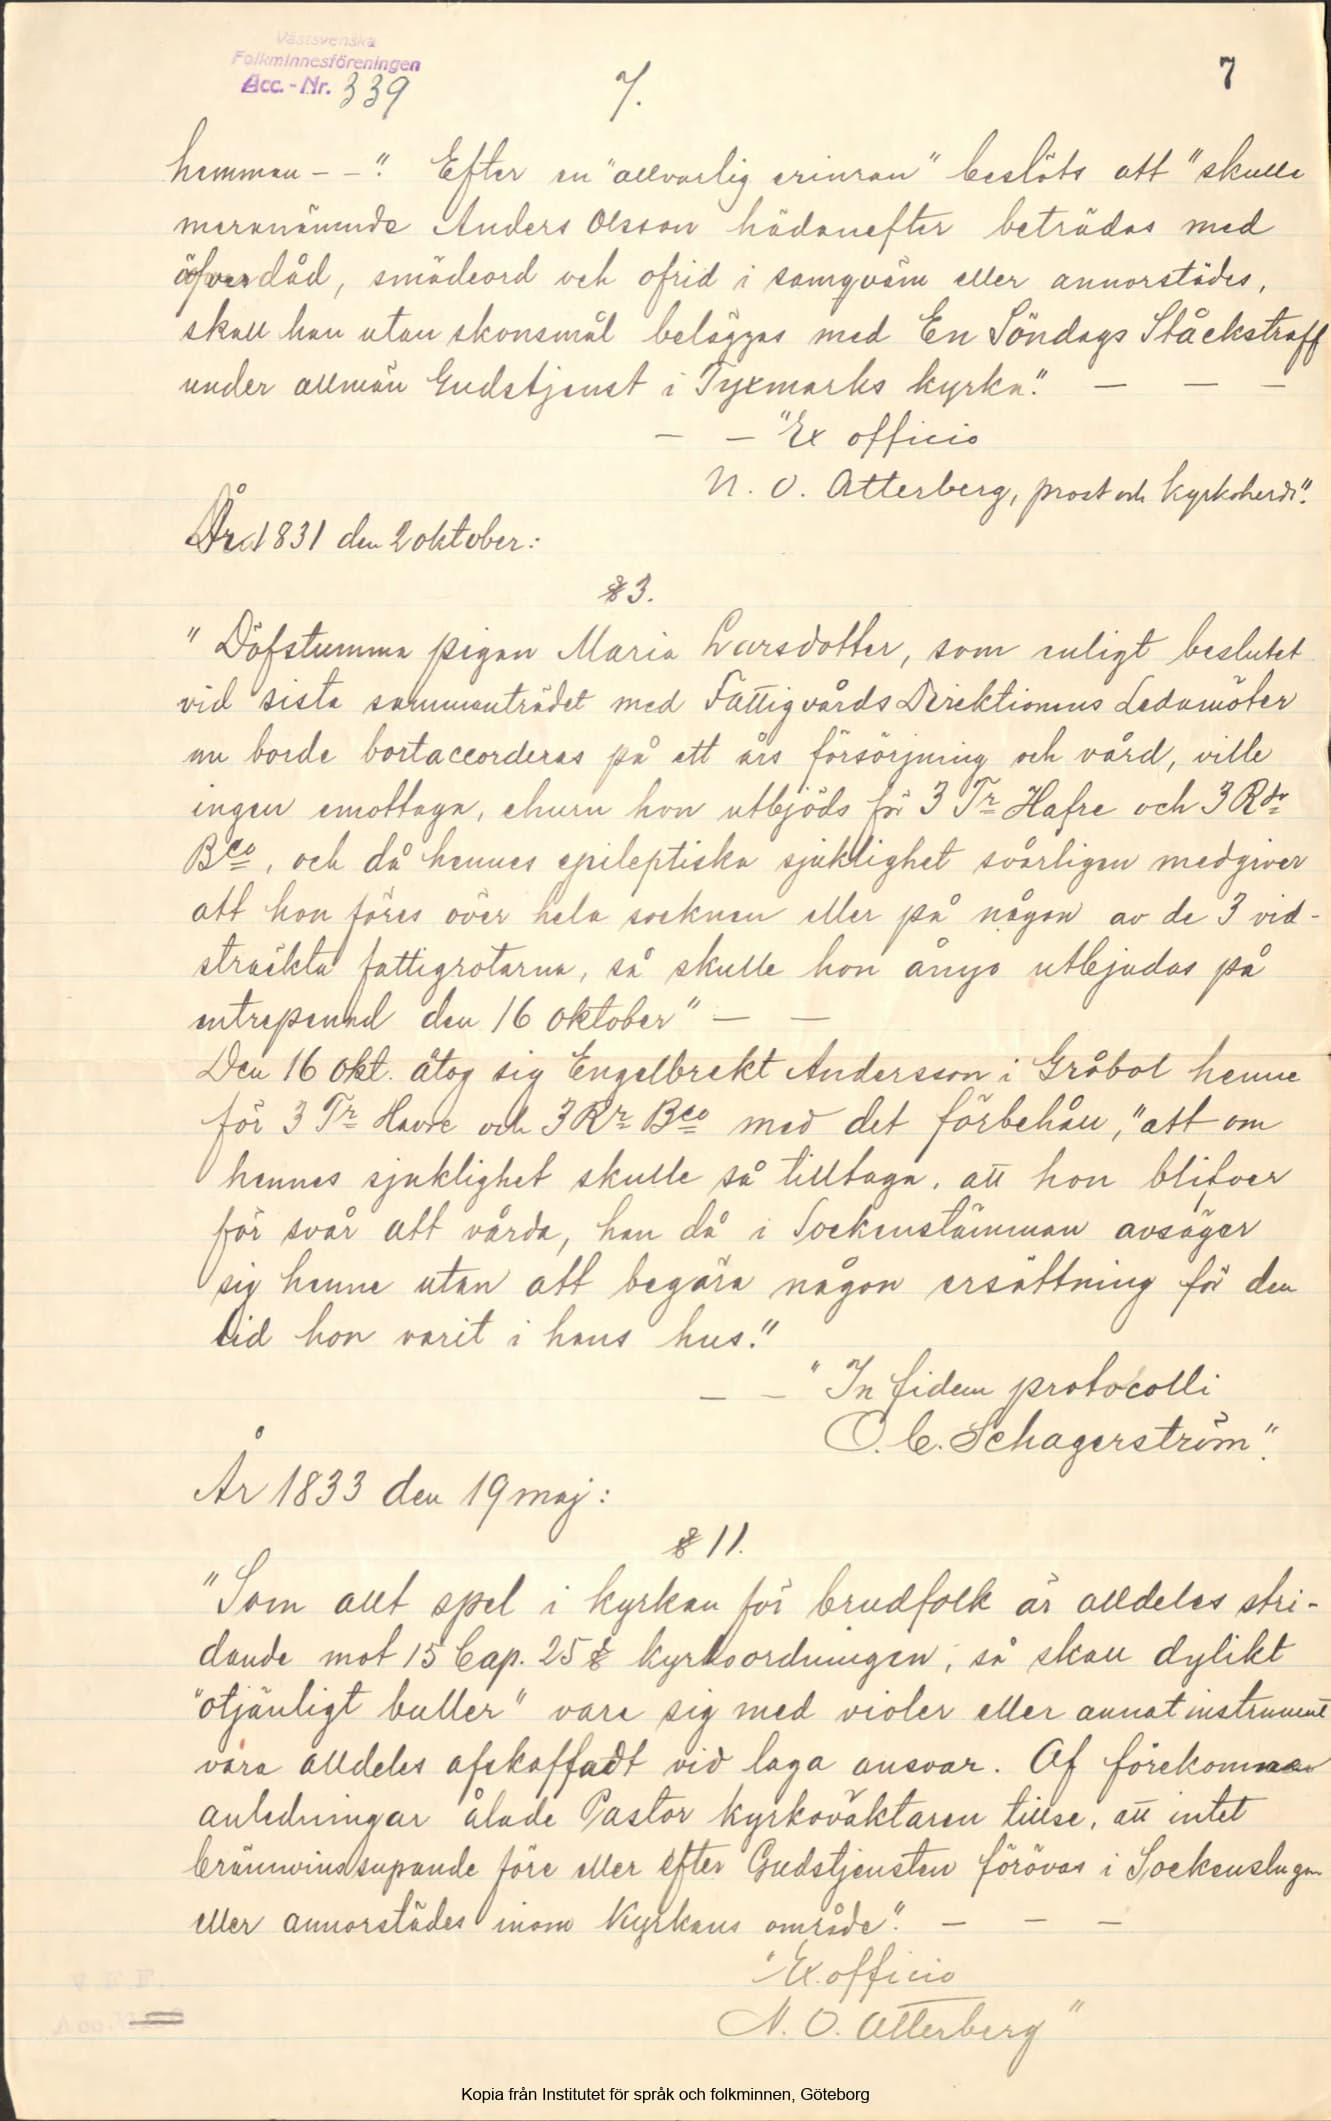 Västsvenska
Folkminnesföreningen
Acc.-Nr. 339
7.
7
hemman - -". Efter en "allvarlig erinran" beslöts att "skulle
meranämnde Anders Olsson hädanefter beträdas med
öfverdåd, smädeord och ofrid i samqväm eller annorstädes,
skall han utan skonsmål beläggas med En Söndags Ståckstraff
under allmän Gudstjenst i Tyxmarks kyrka". — — —
— — "Ex officio
N. O. Atterberg, prost och kyrkoherde".
År 1831 den 2 oktober:
§ 3.
"Döfstumma pigan Maria Larsdotter, som enligt beslutet
vid sista sammanträdet med Fattigvårds Direktionens Ledamöter
nu borde bortaccorderas på ett års försörjning och vård, ville
ingen emottaga, ehuru hon utbjöds för 3 Tr Hafre och 3 Rdr
Bco, och då hennes epileptiska sjuklighet svårligen medgiver
att hon föres över hela socknen eller på någon av de 3 vid-
sträckta fattigrotarna, så skulle hon ånyo utbjudas på
entrepenad den 16 oktober" — —
Den 16 okt. åtog sig Engelbrekt Andersson i Gråbol henne
för 3 Tr Havre och 3 Rr Bco med det förbehåll, "att om
hennes sjuklighet skulle så tilltaga, att hon blifver
för svår att vårda, han då i Sockenstämman avsäger
sig henne utan att begära någon ersättning för den
tid hon varit i hans hus."
— — "In fidem protocolli
O. C. Schagerström".
År 1833 den 19 maj:
§ 11.
"Som allt spel i kyrkan för brudfolk är alldeles stri-
dande mot 15 Cap. 25 § kyrkoordningen, så skall dylikt
"otjänligt buller" vare sig med violer eller annat instrument
vara alldeles afskaffadt vid laga ansvar. Af förekomna
anledningar ålade Pastor kyrkoväktaren tillse, att intet
brännvinssupande före eller efter Gudstjensten förövas i Sockenstugan
eller annorstädes inom Kyrkans område". — — —
"Ex officio
N. O. Atterberg"
Kopia från Institutet för språk och folkminnen, Göteborg